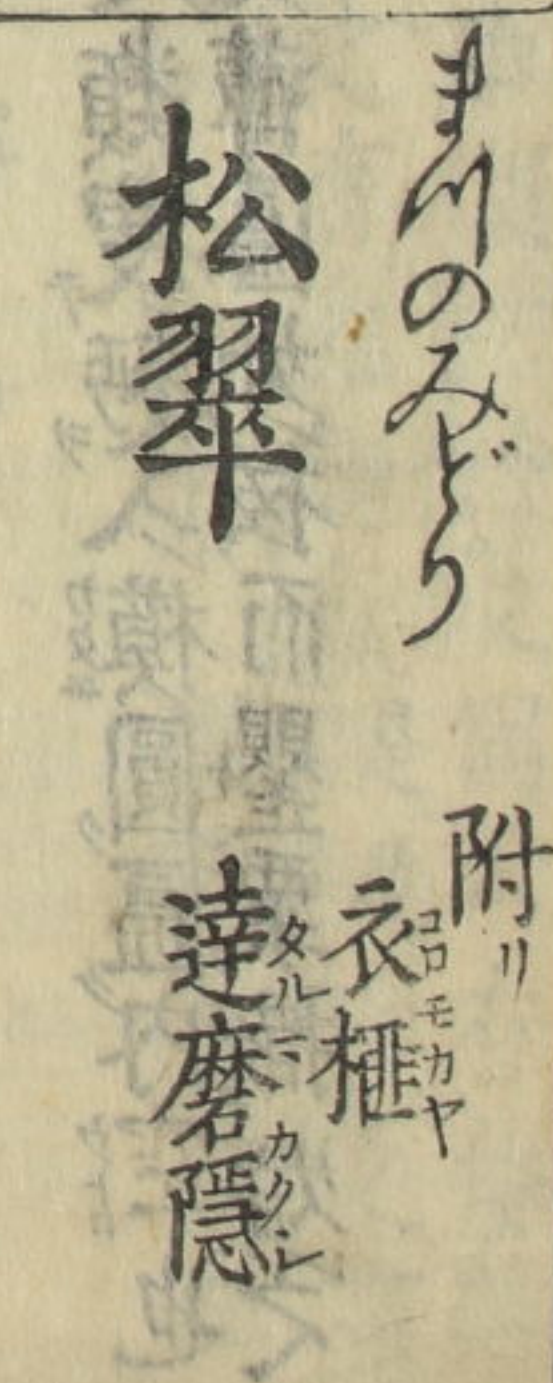 まつのみどり
松翠
附リ
衣榧
コロモカヤ
達磨隠
タルマカクシ